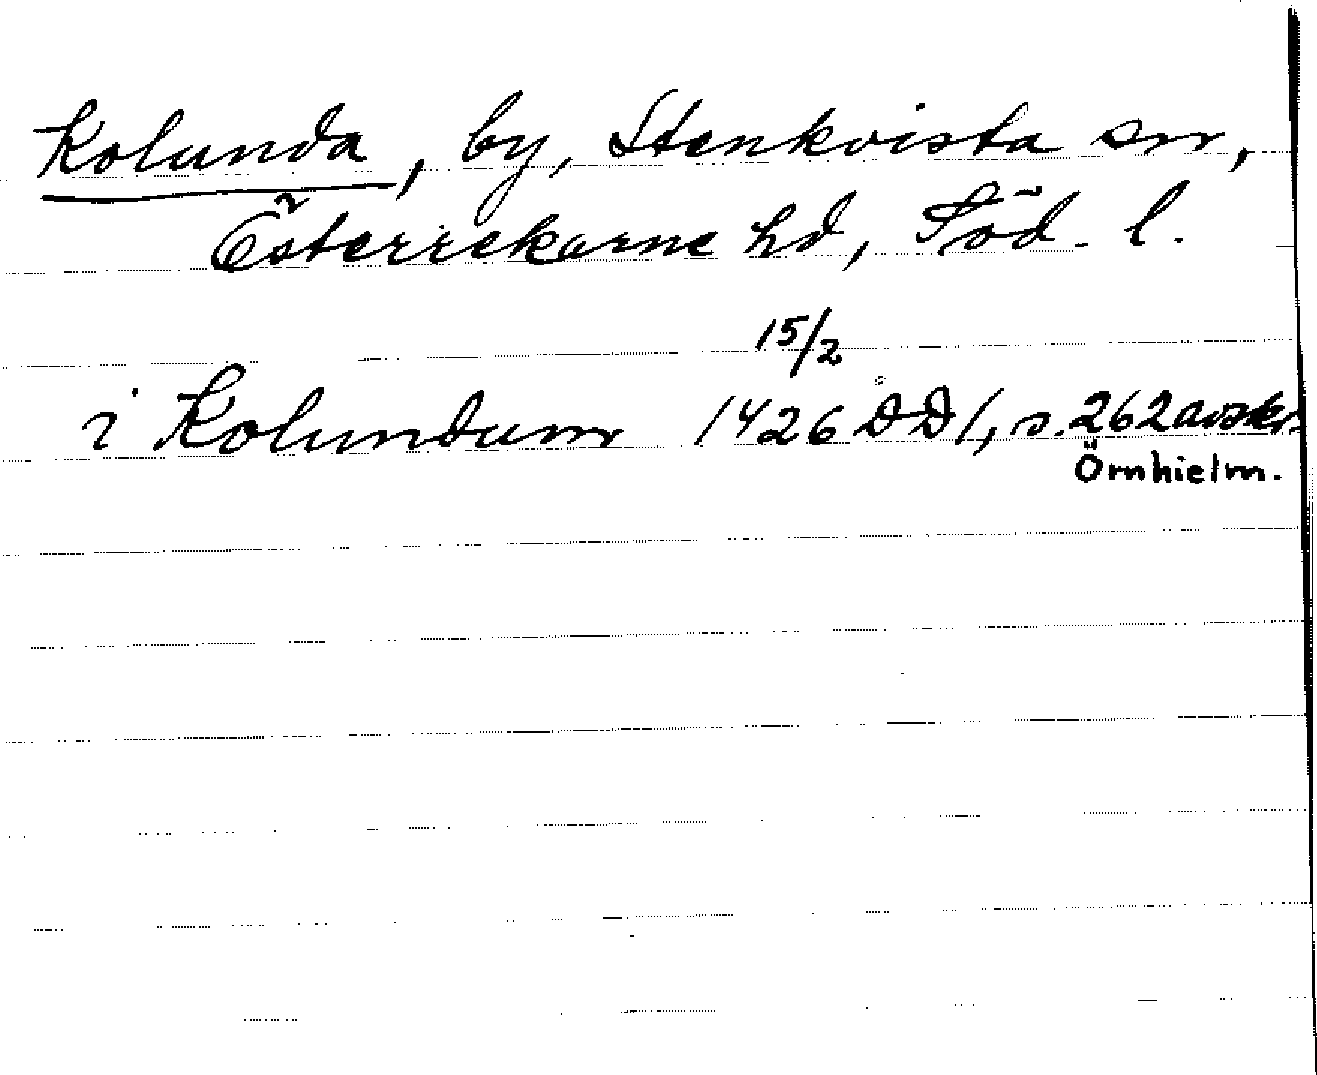 Kolunda, by, Stenkvista sn,
Österrekarne hd, Söd. l.
i Kolundum 15/2 1426 DD1, s. 262 avskr.
Örnhielm.